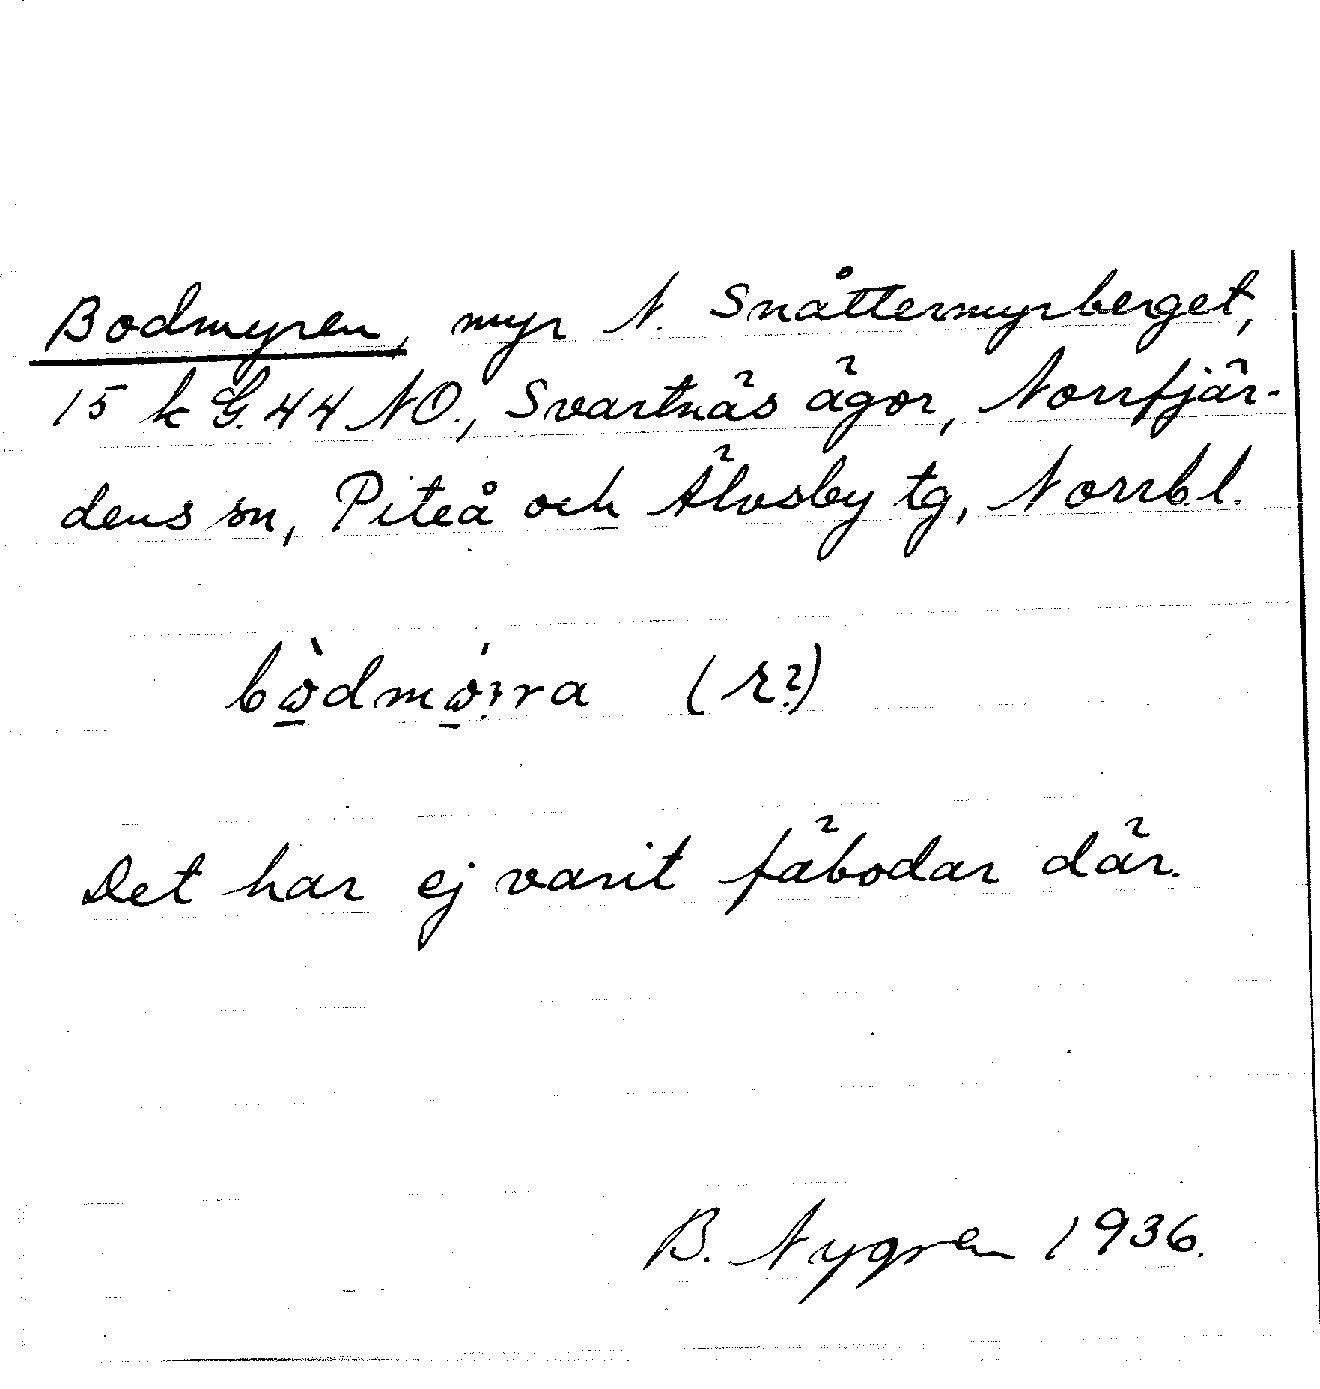 Bodmyren, myr N. Snåttermyrberget,
15 k G. 44 NO., Svartnäs ägor, Norrfjär-
dens sn, Piteå och Älvsby tg, Norrb. l.
Det har ej varit fäbodar där.
B. Nygren 1936.